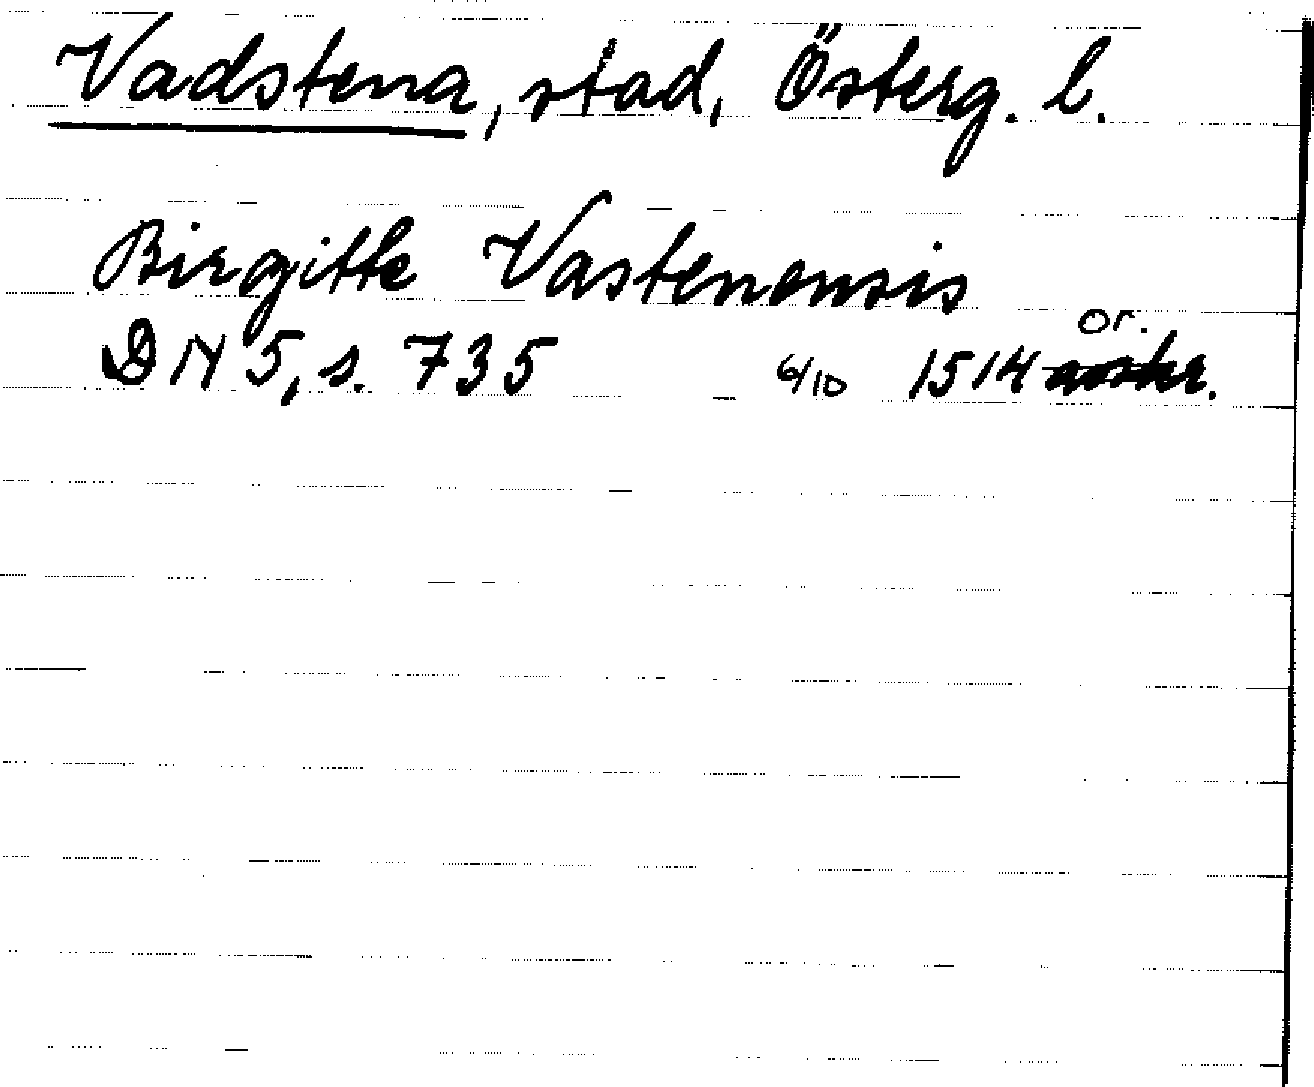 Vadstena, stad, Österg. l.
Birgitte Vastenensis
DN 5, s. 735 6/10 1514 or.